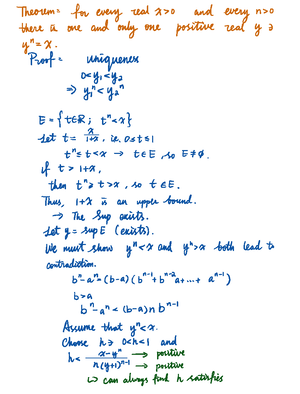 Theorem: for every real x>0 and every n>0
there is one and only one positive real y ∋
yⁿ = x.
Proof: uniqueness
0<y₁<y₂
⇒ y₁ⁿ < y₂ⁿ
E = {t∈ℝ; tⁿ<x}
Let t = x/(1+x), i.e. 0≤t≤1
tⁿ≤t<x → t∈E, so E≠∅.
if t > 1+x,
then tⁿ≥t>x, so t∉E.
Thus, 1+x is an upper bound.
→ The Sup exists.
Let y = sup E (exists).
We must show yⁿ<x and yⁿ>x both lead to
contradiction.
bⁿ-aⁿ = (b-a)(bⁿ⁻¹+bⁿ⁻²a+...+ aⁿ⁻¹)
b>a
bⁿ-aⁿ < (b-a)n bⁿ⁻¹
Assume that yⁿ<x.
Choose h ∋ 0<h<1 and
h < (x-yⁿ)/(n(y+1)ⁿ⁻¹) → positive
→ positive
↳ can always find h satisfies